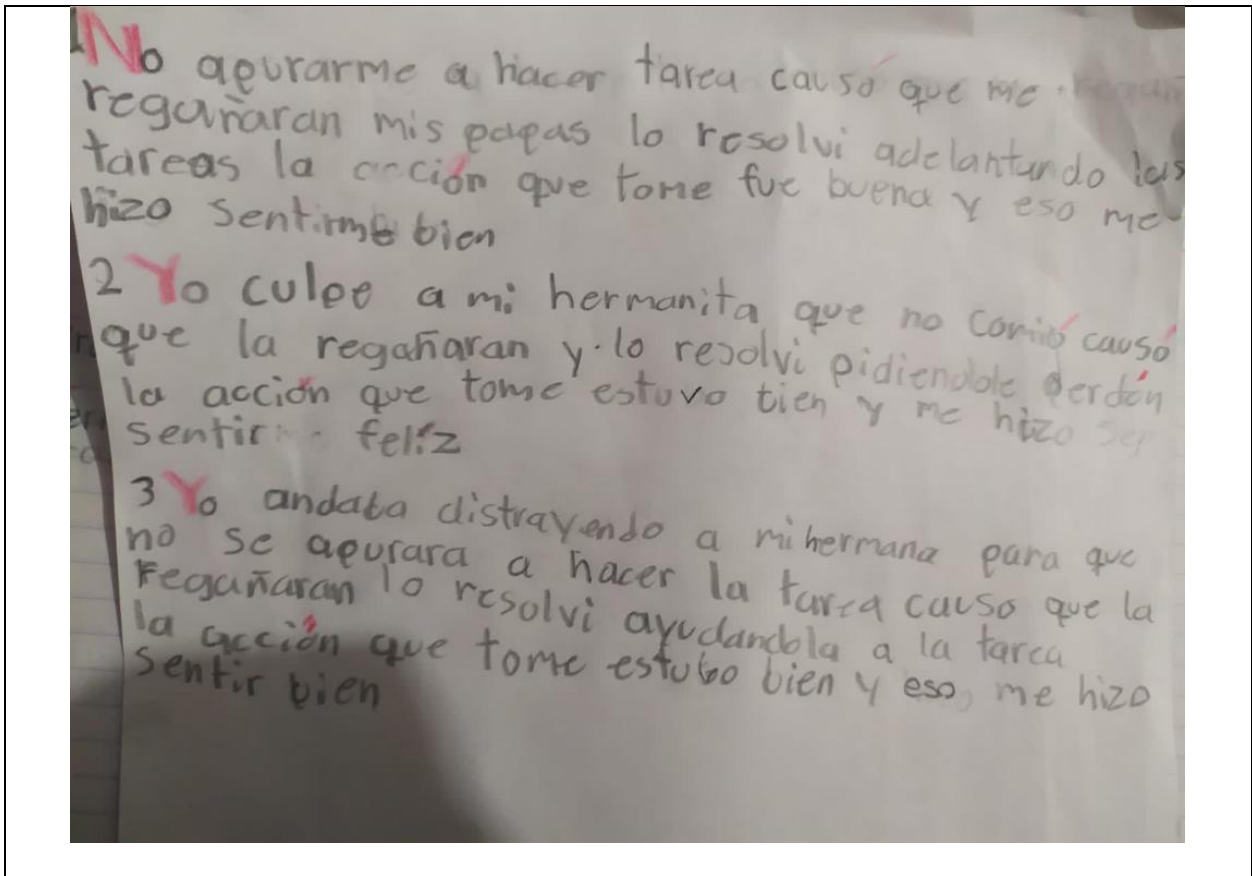 1 No apurarme a hacer tarea causó que me
regañaran mis papas lo resolvi adelantando las
tareas la acción que tome fue buena y eso me
hizo sentirme bien
2 Yo culpe a mi hermanita que no comió causó
que la regañaran y lo resolvi pidiendole perdón
la acción que tome estuvo bien y me hizo
sentir feliz
3 Yo andaba distrayendo a mi hermana para que
no se apurara a hacer la tarea causo que la
regañaran lo resolvi ayudandola a la tarea
la acción que tome estubo bien y eso me hizo
sentir bien